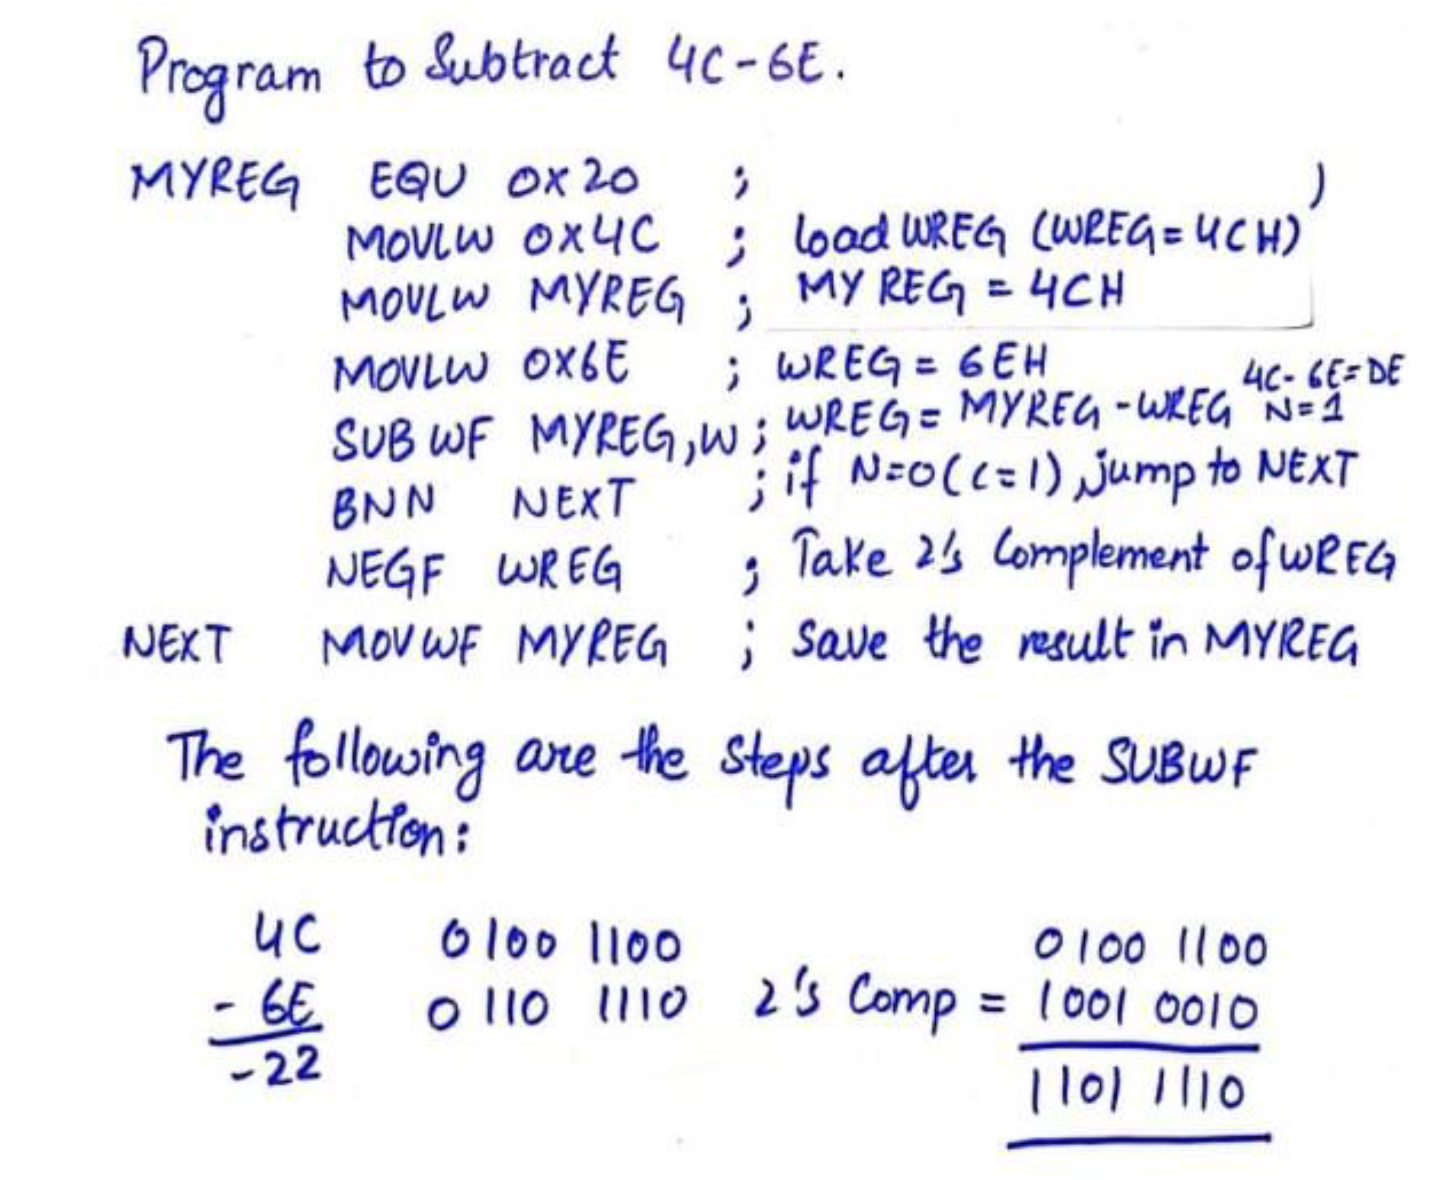 Program to Subtract 4C-6E.
MYREG EQU 0X20 ; )
MOVLW 0X4C ; load WREG (WREG=4CH)
MOVLW MYREG ; MY REG = 4CH
MOVLW 0X6E ; WREG = 6EH 4C-6E=DE
SUBWF MYREG,W ; WREG= MYREG-WREG N=1
BNN NEXT ; if N=0(C=1), jump to NEXT
NEGF WREG ; Take 2's Complement of WREG
NEXT MOVWF MYREG ; Save the result in MYREG
The following are the steps after the SUBWF
instruction:
4C 0100 1100 0100 1100
- 6E 0110 1110 2's Comp = 1001 0010
-22 1101 1110